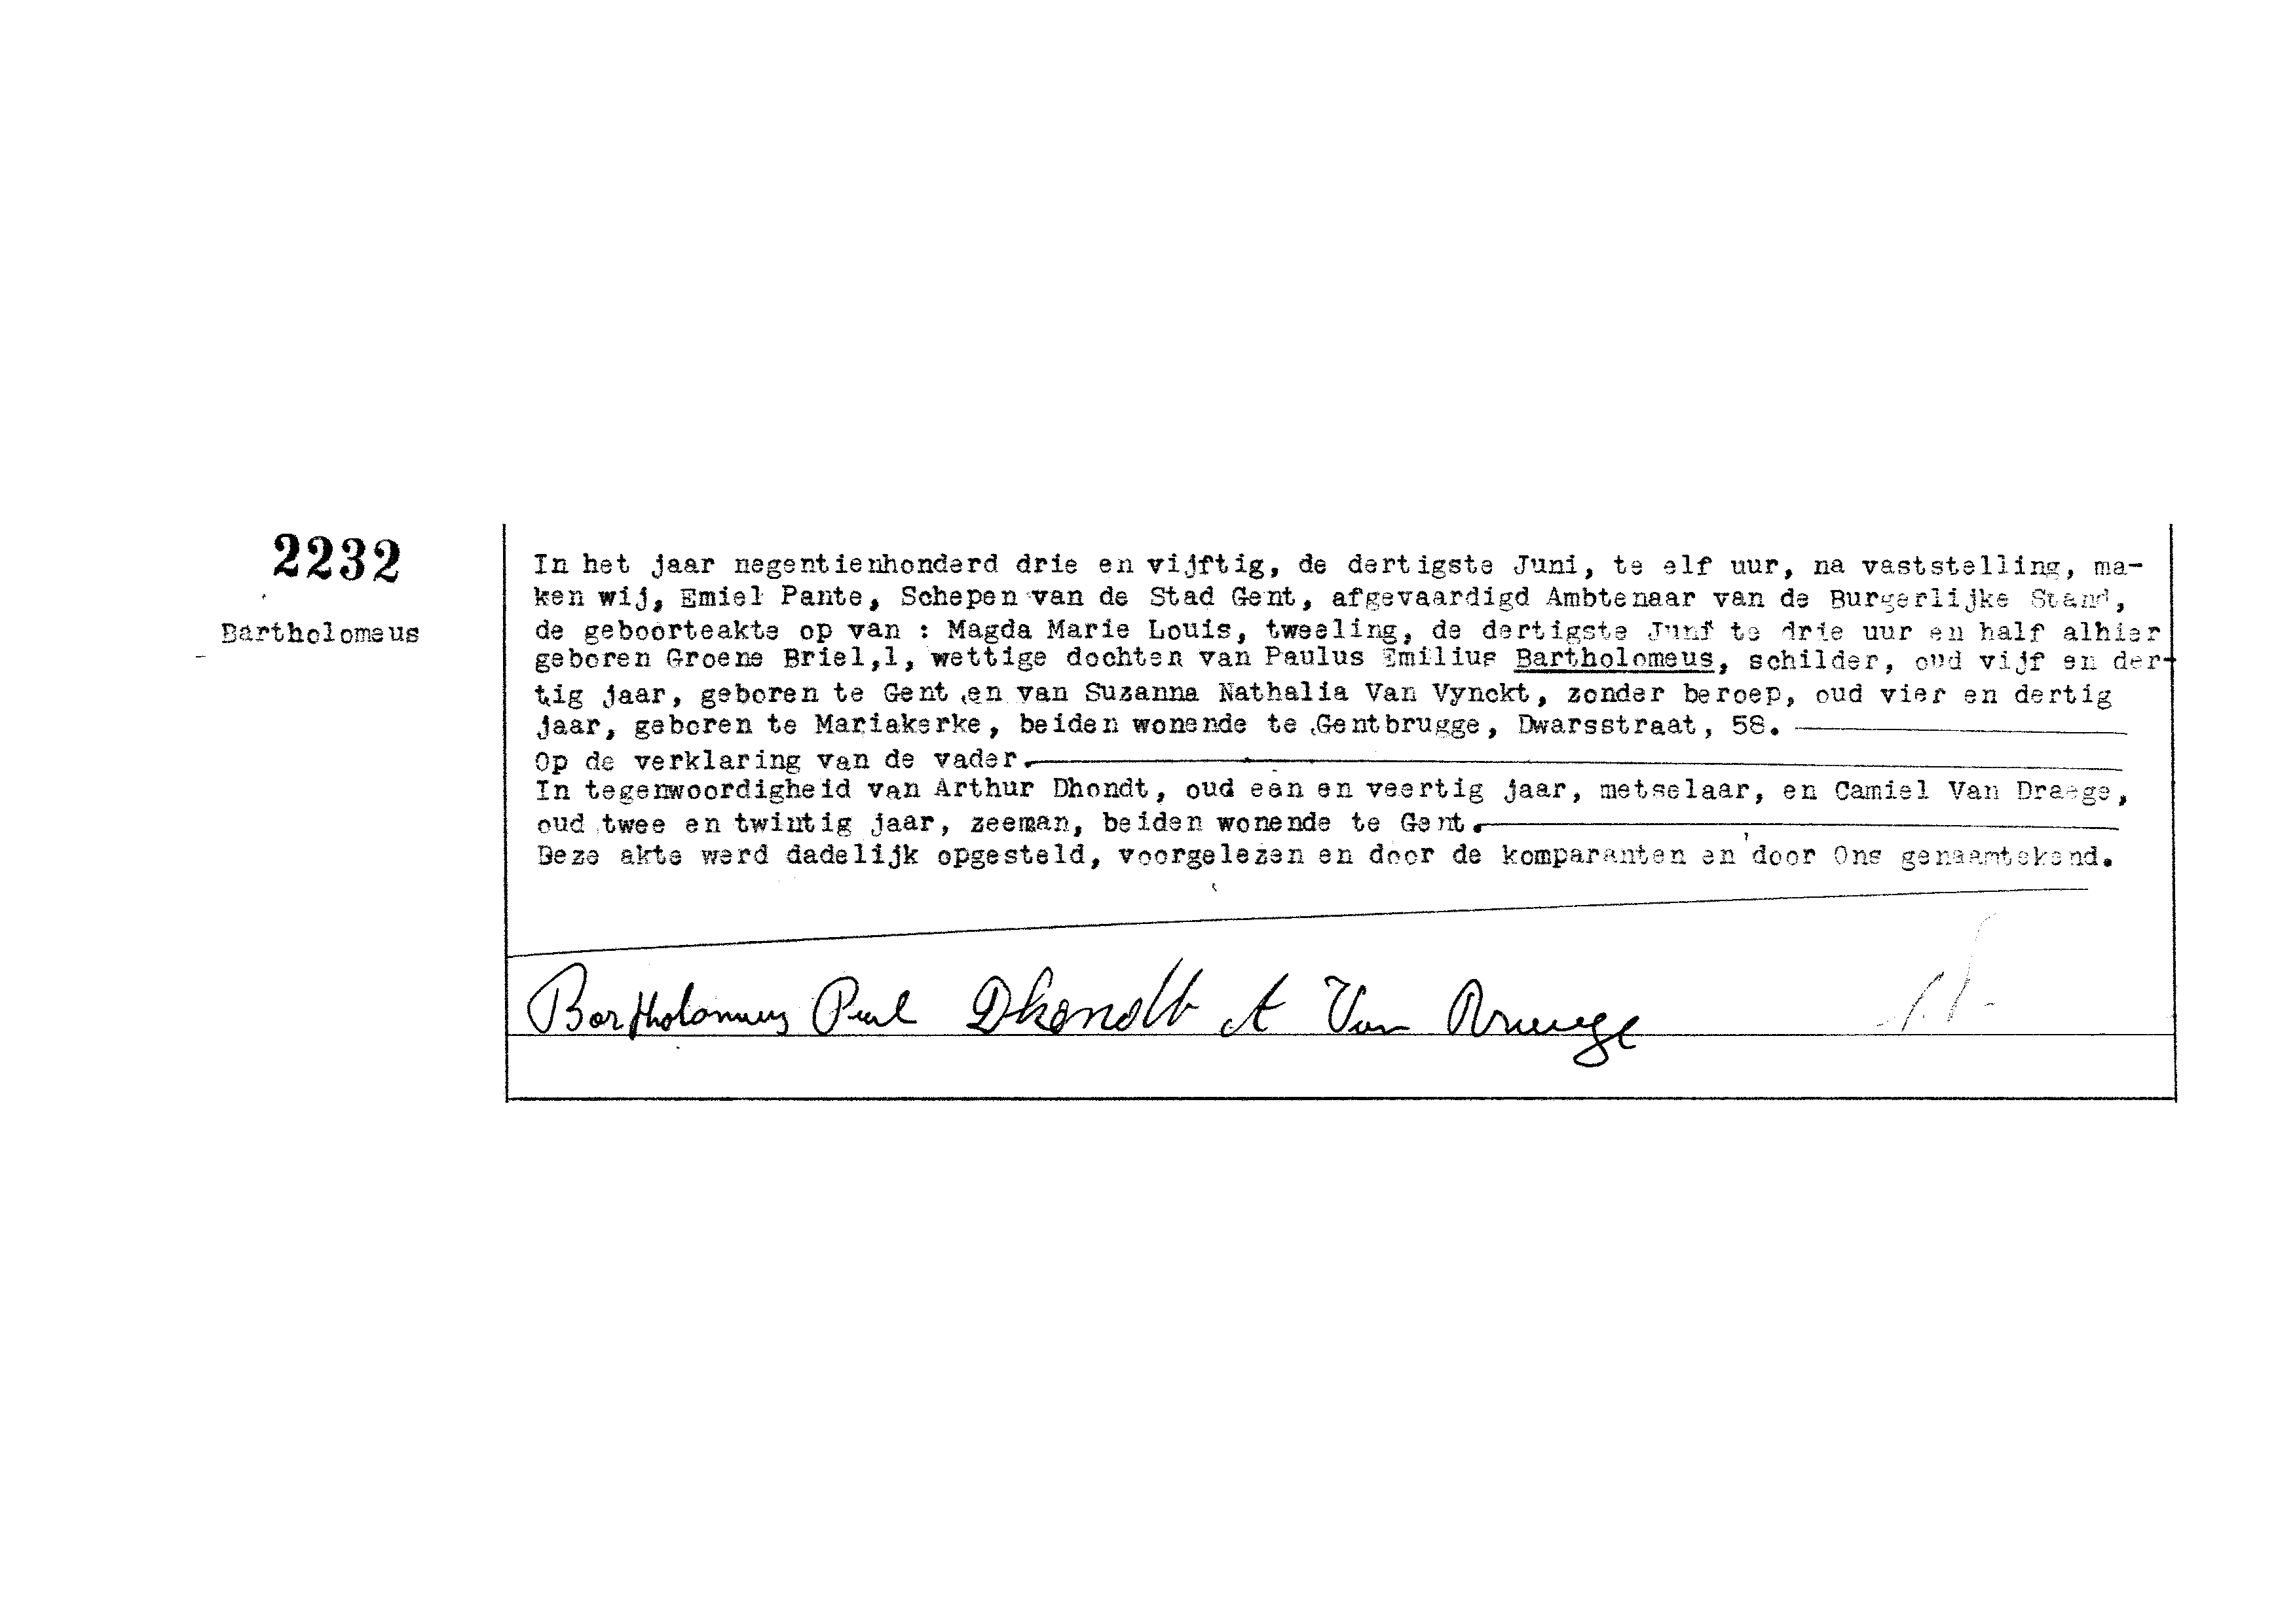 2232
Bartholomeus
In het jaar negentienhonderd drie en vijftig, de dertigste Juni, te elf uur, na vaststelling, ma-
ken wij, Emiel Pante, Schepen van de Stad Gent, afgevaardigd Ambtenaar van de Burgerlijke Stand,
de geboorteakte op van : Magda Marie Louis, tweeling, de dertigste Juni te drie uur en half alhier
geboren Groene Briel,1, wettige dochten van Paulus Emilius Bartholomeus, schilder, oud vijf en der-
tig jaar, geboren te Gent en van Suzanna Nathalia Van Vynckt, zonder beroep, oud vier en dertig
jaar, geboren te Mariakerke, beiden wonende te Gentbrugge, Dwarsstraat, 58.
Op de verklaring van de vader.
In tegenwoordigheid van Arthur Dhondt, oud een en veertig jaar, metselaar, en Camiel Van Draege,
oud twee en twintig jaar, zeeman, beiden wonende te Gent.
Deze akte werd dadelijk opgesteld, voorgelezen en door de komparanten en door Ons genaamtekend.
Bartholomeus Paul Dhondt A Van Draege